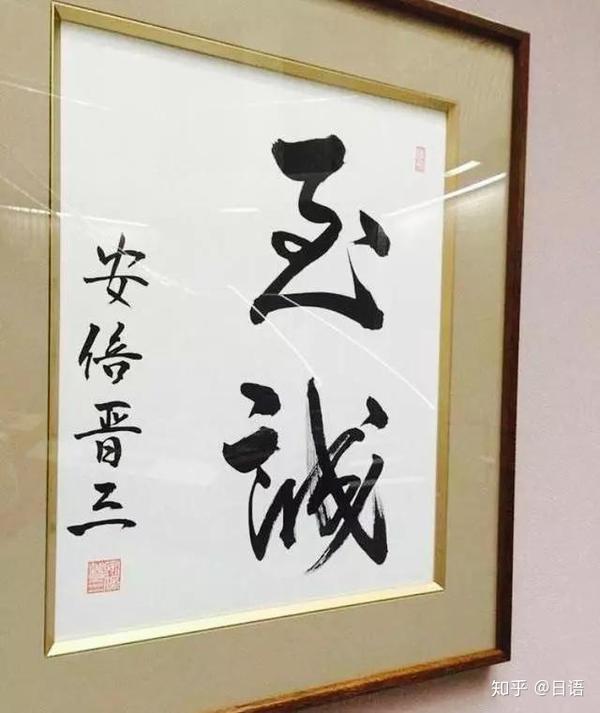 至誠
安倍晋三
知乎 @日语